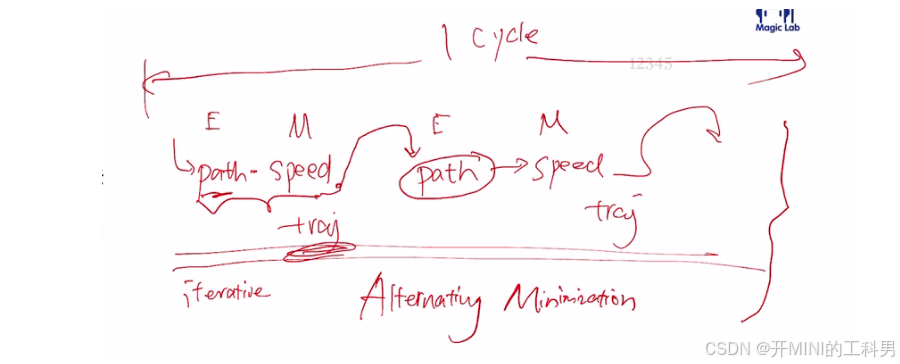 Magic Lab
1 Cycle
12345
E M E M
path - speed path → speed
traj traj
iterative Alternating Minimization
CSDN @开MINI的工科男